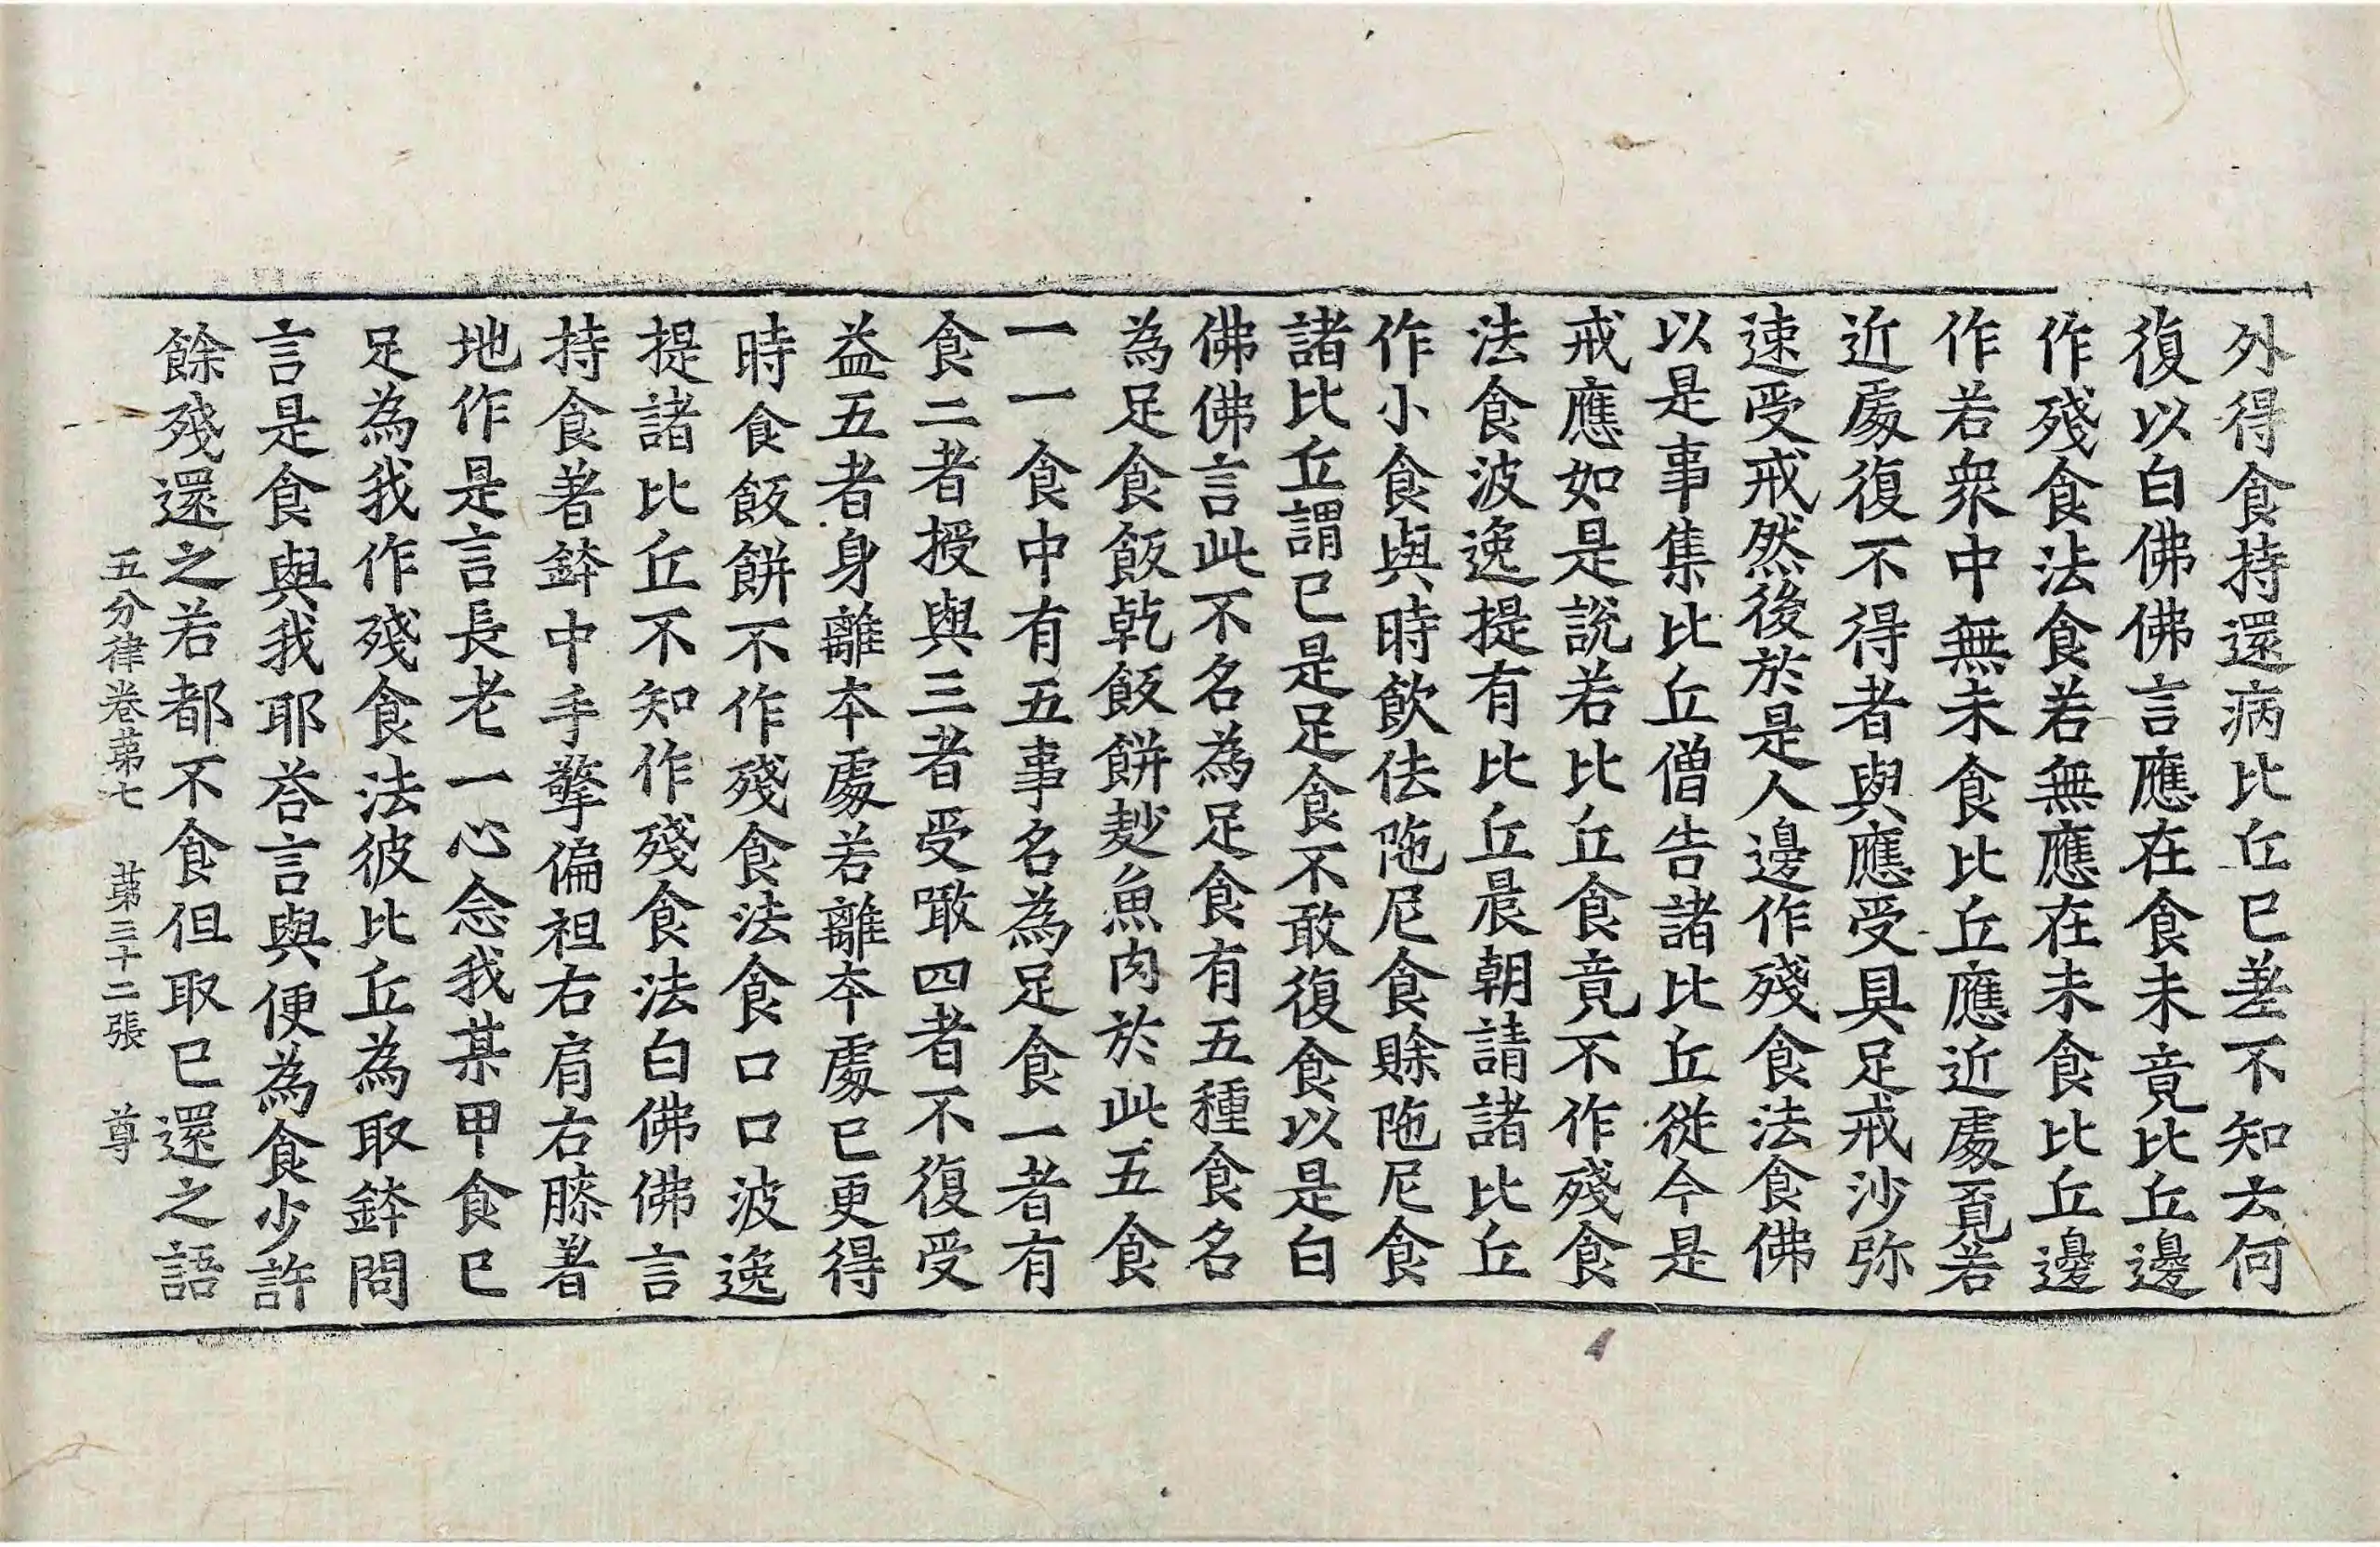 外得食持還病比丘已差不知云何
復以白佛佛言應在食未竟比丘邊
作殘食法食若無應在未食比丘邊
作若衆中無未食比丘應近處覓若
近處復不得者與應受具足戒沙弥
速受戒然後於是人邊作殘食法食佛
以是事集比丘僧告諸比丘從今是
戒應如是說若比丘食竟不作殘食
法食波逸提有比丘晨朝請諸比丘
作小食與時飲佉陁尼食賒陁尼食
諸比丘謂已是足食不敢復食以是白
佛佛言此不名為足食有五種食名
為足食飯乾飯餅麨魚肉於此五食
一一食中有五事名為足食一者有
食二者授與三者受噉四者不復受
益五者身離本處若離本處已更得
時食飯餅不作殘食法食口口波逸
提諸比丘不知作殘食法白佛佛言
持食著鉢中手擎偏袒右肩右膝著
地作是言長老一心念我某甲食已
足為我作殘食法彼比丘為取鉢問
言是食與我耶荅言與便為食少許
餘殘還之若都不食但取已還之語
五分律卷苐七 苐三十二張 尊